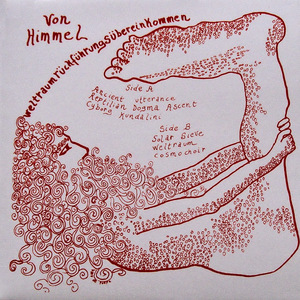 Von
Himmel
weltraumrückführungsübereinkommen
Side A
Ancient utterance
Reptilian Dogma Ascent
Cyborg Kundalini
Side B
Solar Sieve
Weltraum
Cosmochoir